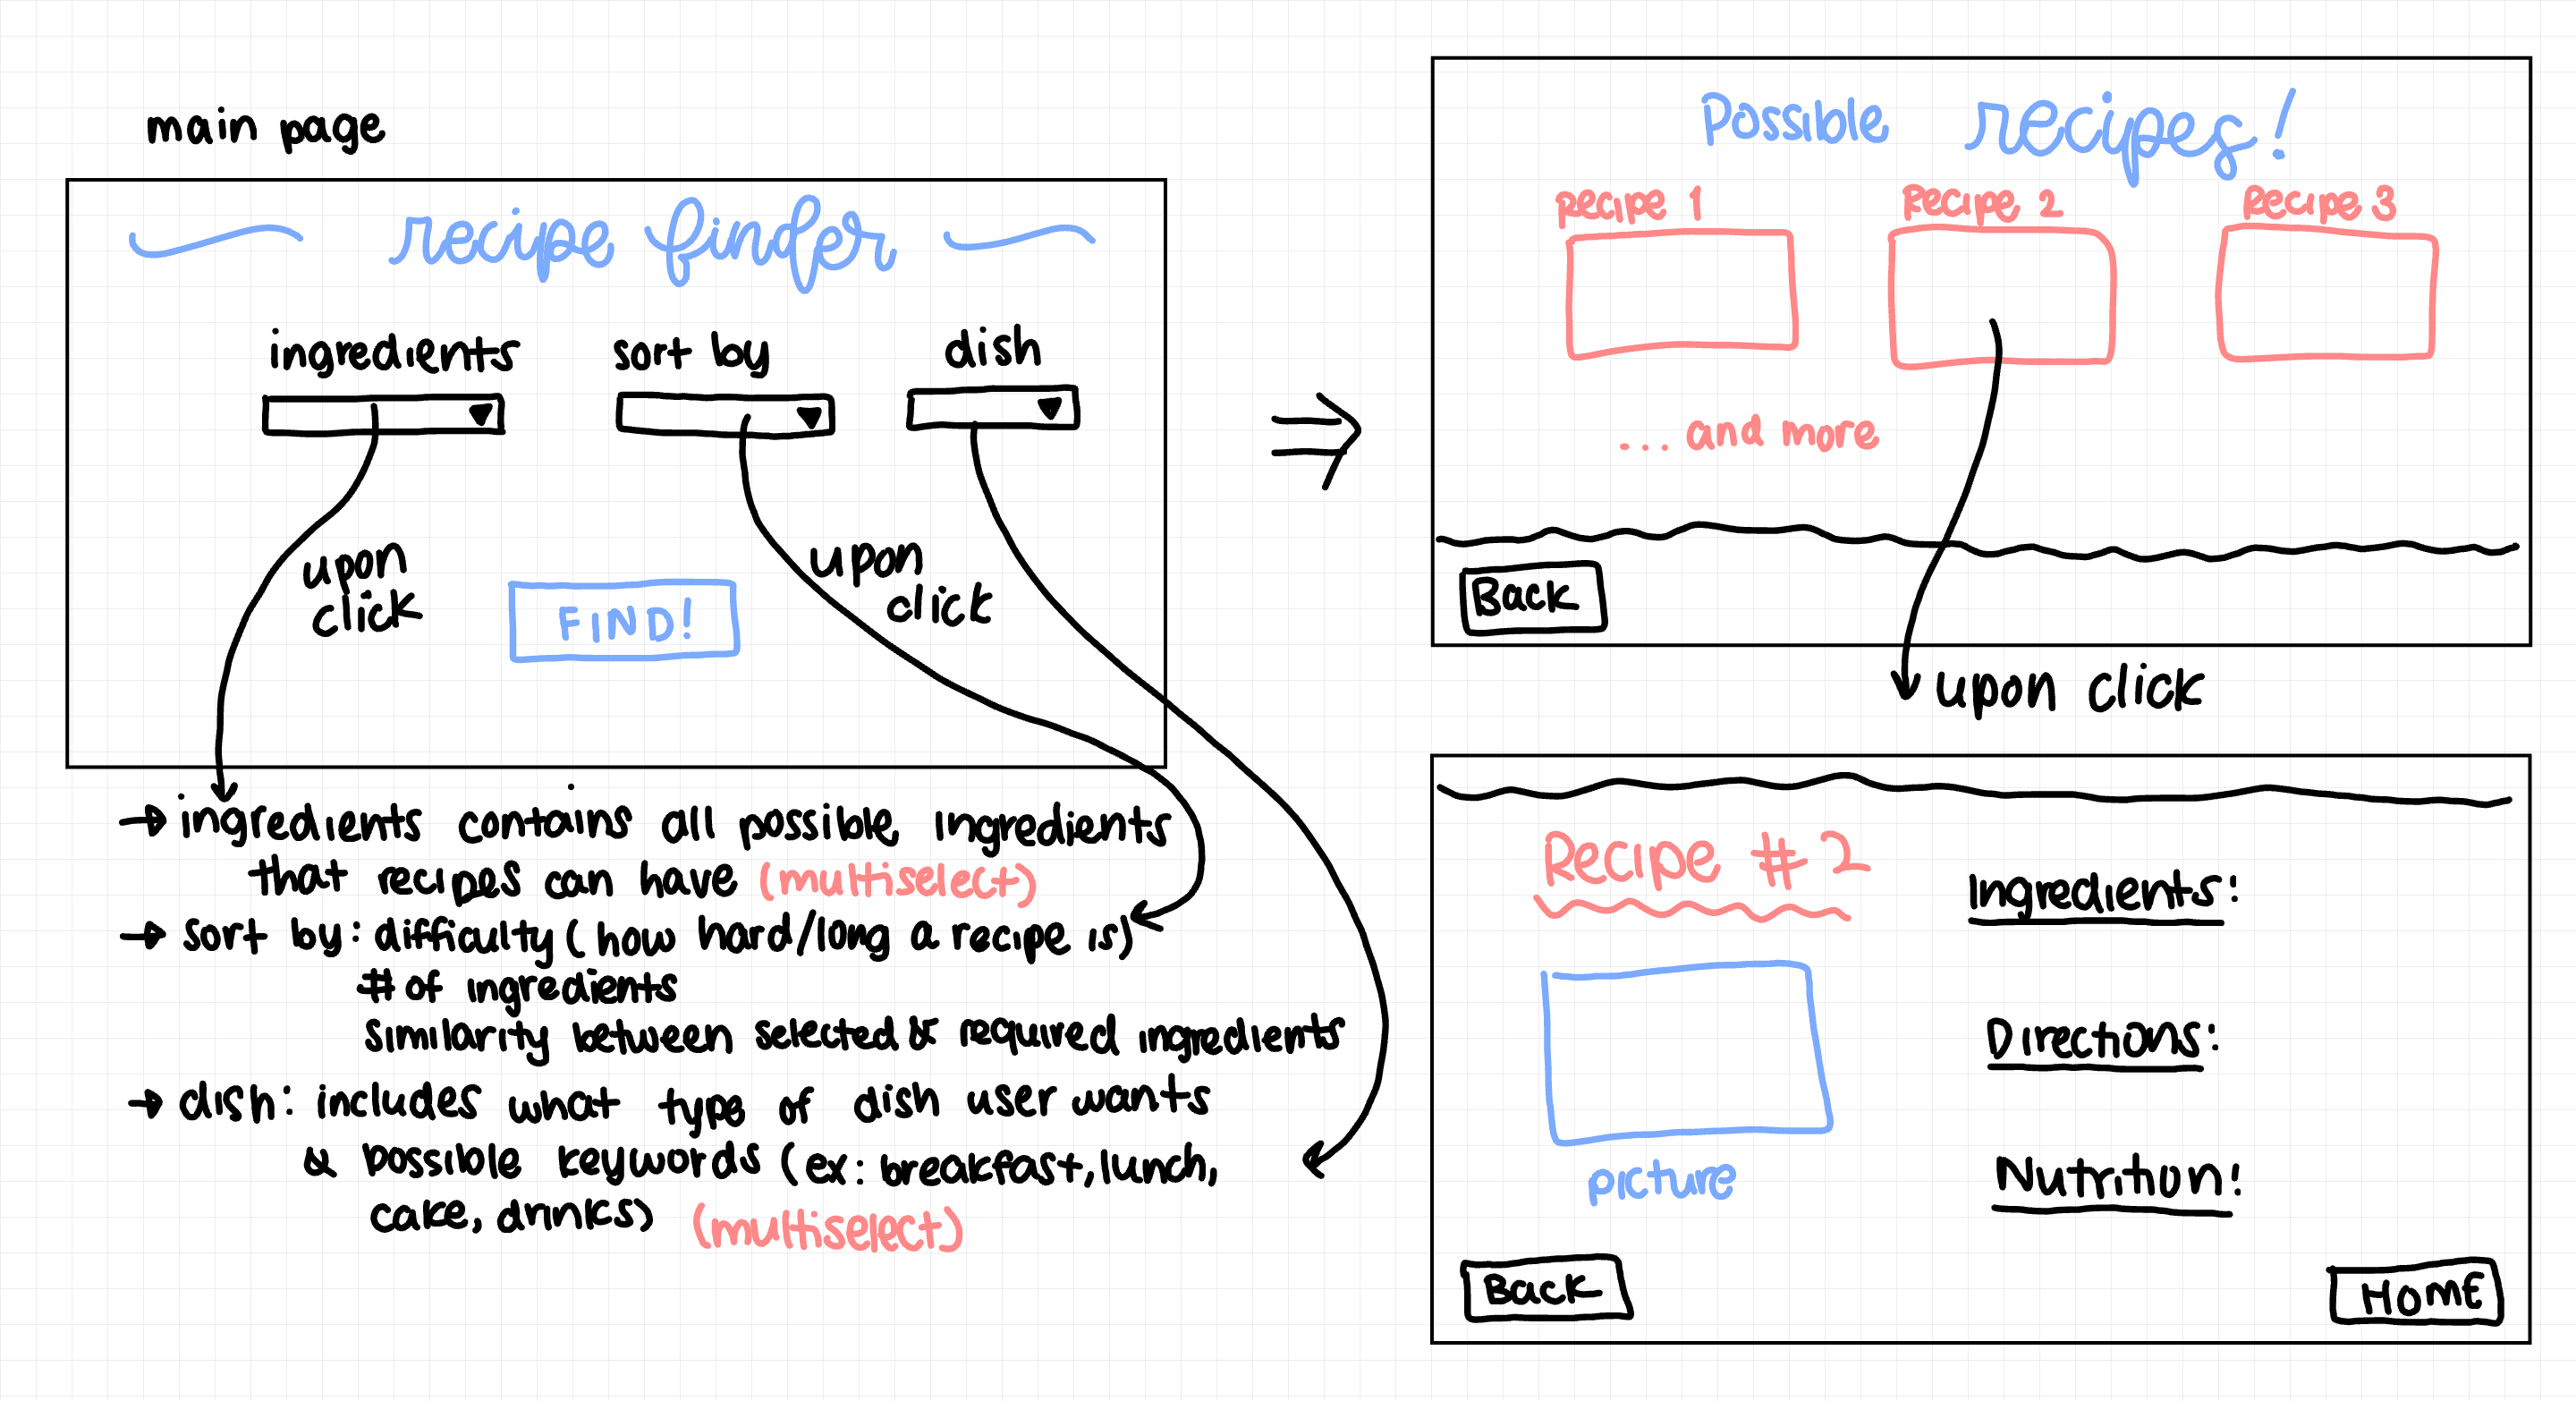 main page
recipe finder
ingredients
sort by
dish
upon
click
upon
click
FIND!
→ ingredients contains all possible ingredients
that recipes can have (multiselect)
→ sort by: difficulty (how hard/long a recipe is)
# of ingredients
similarity between selected & required ingredients
→ dish: includes what type of dish user wants
& possible keywords (ex: breakfast, lunch,
cake, drinks) (multiselect)
Possible recipes!
Recipe 1
Recipe 2
Recipe 3
... and more
Back
upon click
Recipe #2
picture
Ingredients:
Directions:
Nutrition:
Back
Home